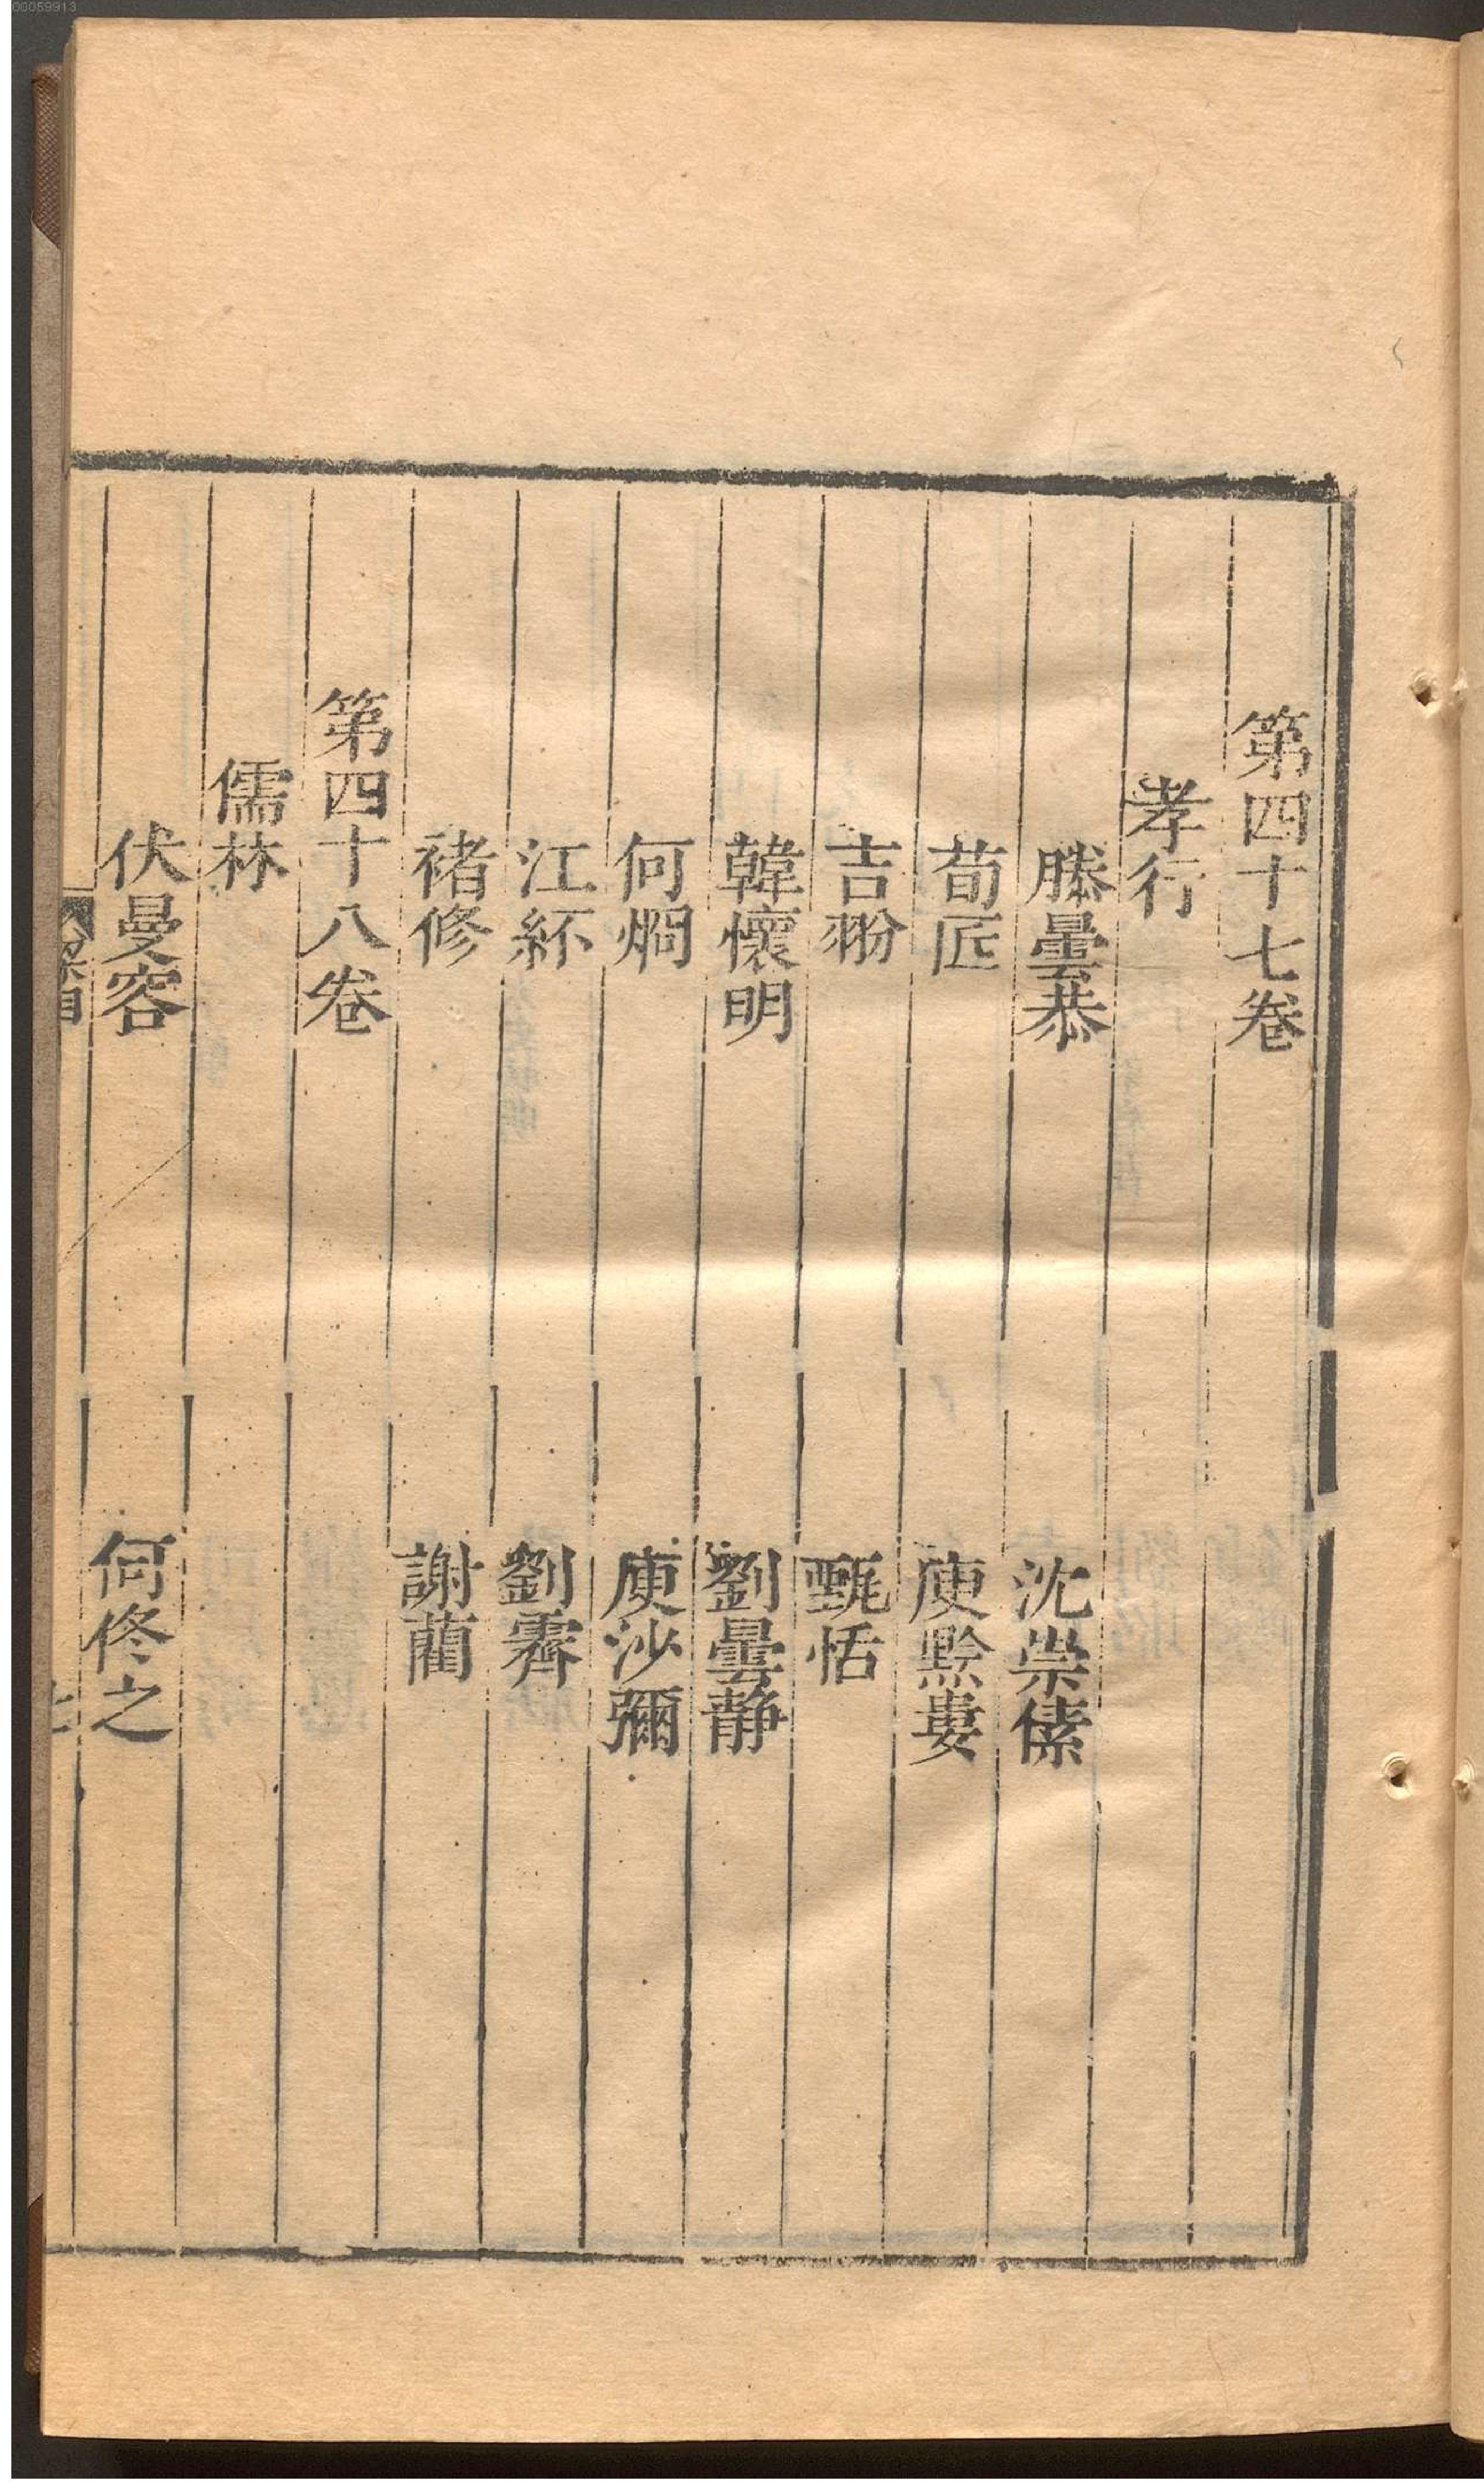 第四十七卷
孝行
滕曇恭　沈崇傃
荀匠　庾黔婁
吉翂　甄恬
韓懷明　劉曇静
何烱　庾沙彌
江紑　劉霽
褚修　謝藺
第四十八卷
儒林
伏曼容　何佟之
00059913